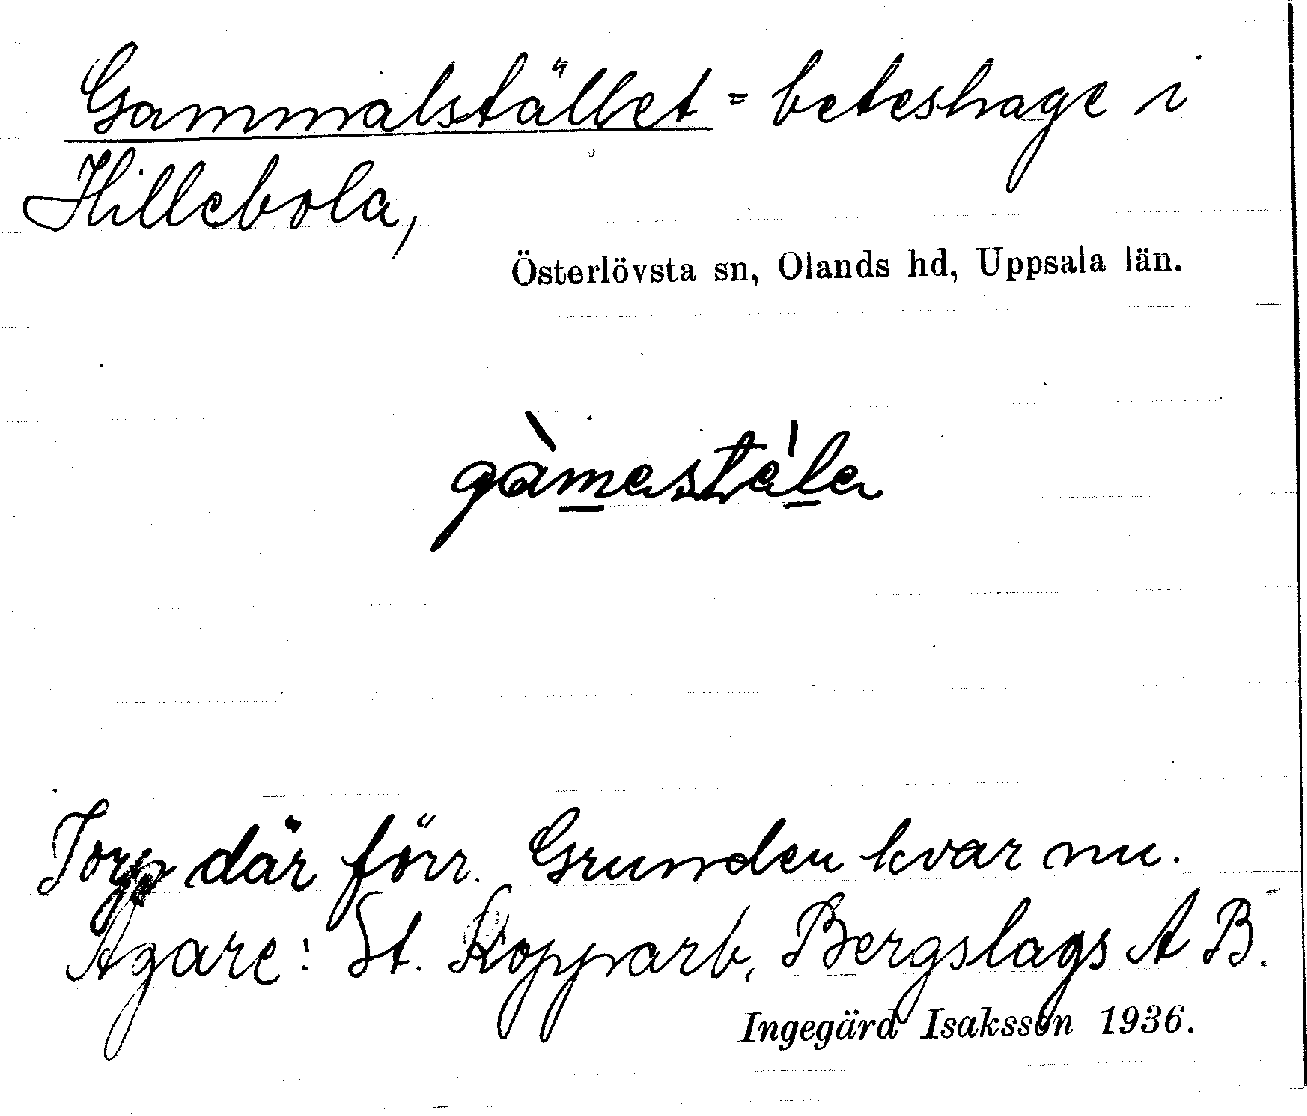 Gammalstället = beteshage i
Hillebola,
Österlövsta sn, Olands hd, Uppsala län.
gàmastä̀la
Torp där förr. Grunden kvar nu.
Ägare: St. Kopparb. Bergslags A B.
Ingegärd Isaksson 1936.